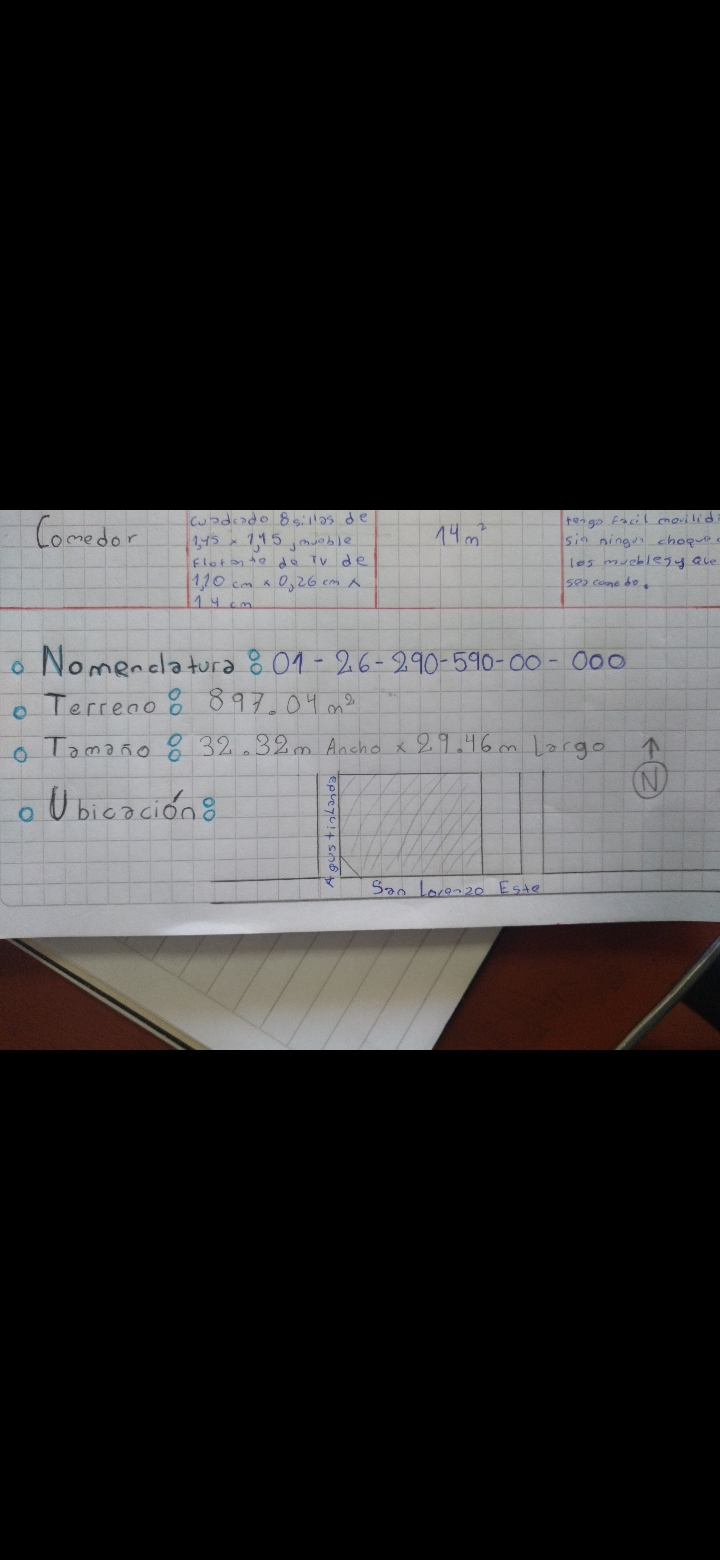 Comedor
cuadrado 8 sillas de
1,45 x 1,45, mueble
flotante de TV de
1,10 cm x 0,26 cm x
1.4 cm
14 m²
tenga facil movilid
sin ningun choque
los muebles y que
sea comodo.
• Nomenclatura: 01-26-290-590-00-000
• Terreno: 897.04 m²
• Tamaño: 32.32m Ancho x 29.46 m Largo
N
• Ubicación:
San Lorenzo Este